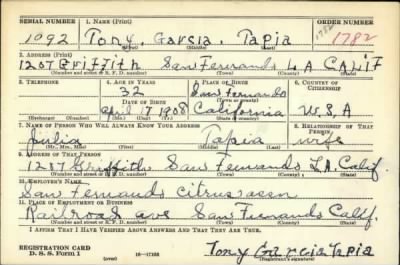 SERIAL NUMBER 1. NAME (Print) ORDER NUMBER
1092 Tony Garcia Tapia 1782 1782
(First) (Middle) (Last)
2. ADDRESS (Print)
1207 Griffith San Fernando L A CALIF
(Number and street or R. F. D. number) (Town) (County) (State)
3. TELEPHONE 4. AGE IN YEARS 5. PLACE OF BIRTH 6. COUNTRY OF CITIZENSHIP
32 San Fernando
DATE OF BIRTH (Town or county)
April 17 1908 California U.S.A
(Exchange) (Number) (Mo.) (Day) (Yr.) (State or country)
7. NAME OF PERSON WHO WILL ALWAYS KNOW YOUR ADDRESS 8. RELATIONSHIP OF THAT PERSON
Julia Tapia wife
(Mr., Mrs., Miss) (First) (Middle) (Last)
9. ADDRESS OF THAT PERSON
1207 Griffith San Fernando L.A. Calif.
(Number and street or R. F. D. number) (Town) (County) (State)
10. EMPLOYER'S NAME
San Fernando Citrus assn
11. PLACE OF EMPLOYMENT OR BUSINESS
Railroad ave San Fernando Calif.
(Number and street or R. F. D. number) (Town) (County) (State)
I AFFIRM THAT I HAVE VERIFIED ABOVE ANSWERS AND THAT THEY ARE TRUE.
REGISTRATION CARD
D. S. S. Form 1 (over) 16—17105 Tony Garcia Tapia
(Registrant's signature)